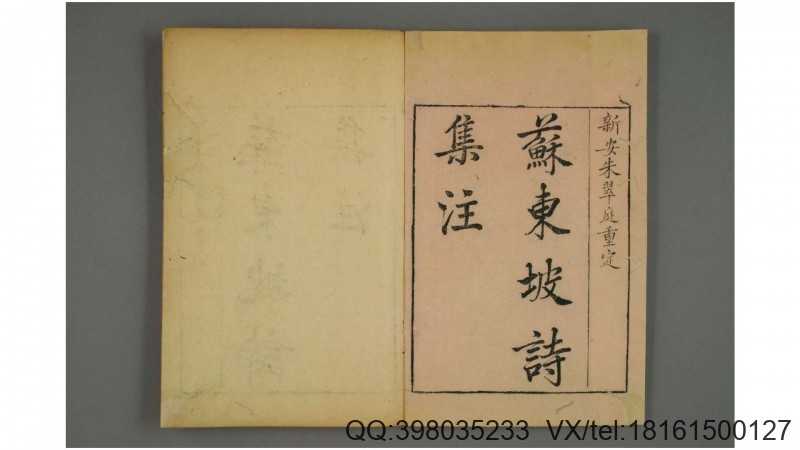 新安朱翠庭重定
蘇東坡詩
集注
QQ:398035233 VX/tel:18161500127